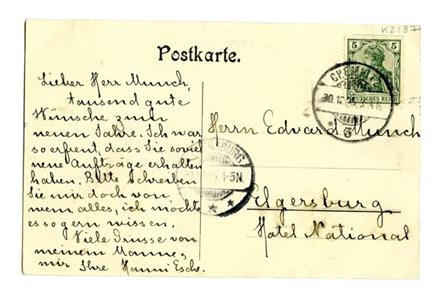 K2137
5 5
DEUTSCHES REICH
CHEMNITZ
Postkarte.
Lieber Herr Munch,
tausend gute
Wünsche zum
neuen Jahre. Ich war
so erfreut, dass Sie soviel
neue Aufträge erhalten
haben. Bitte schreiben
Sie mir doch von
wem alles, ich möchte
es so gern wissen.
Viele Grüsse von
meinem Manne,
mir Ihre Hanni Esche.
BURG
1-5N.
Herrn Edvard Munch
Elgersburg
Hotel National